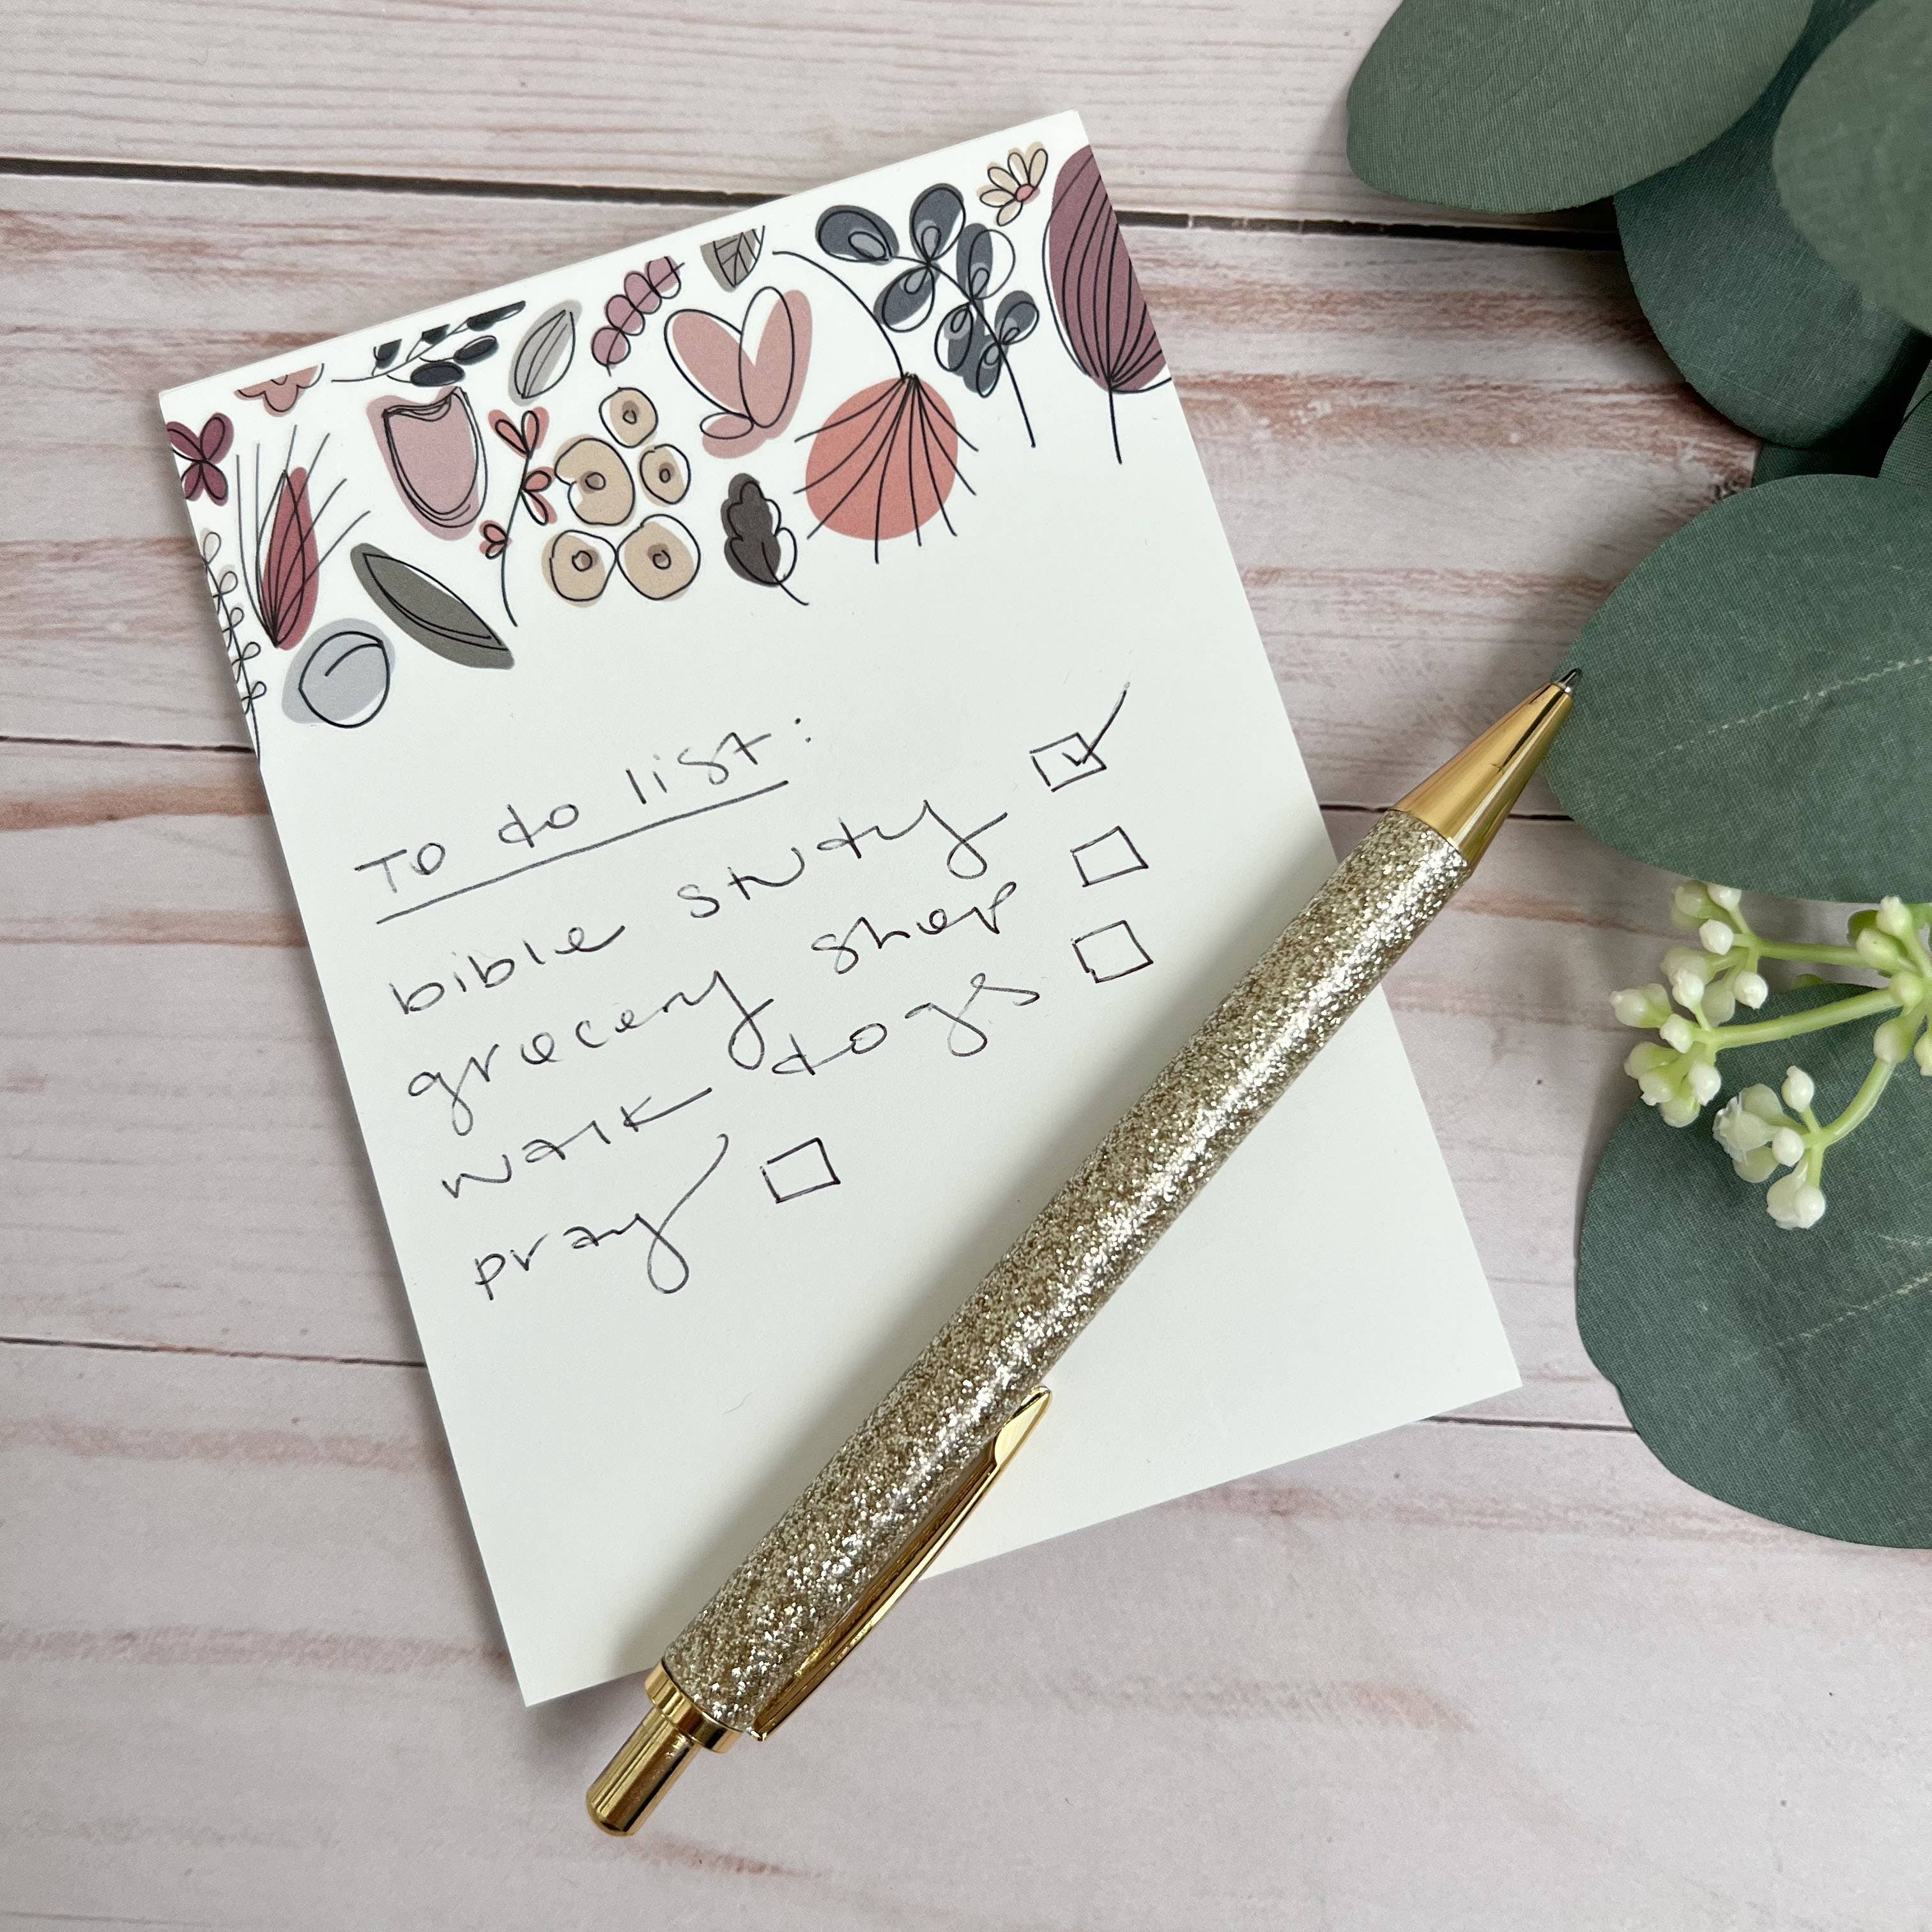 To do list:
bible study
grocery shop
walk dogs
pray